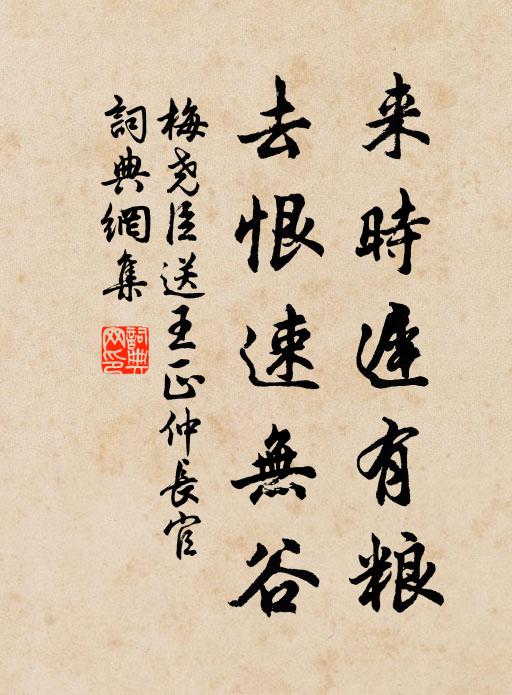 来時遅有粮
去恨速無谷
梅尧臣送王正仲長官
詞典網集
詞典网印